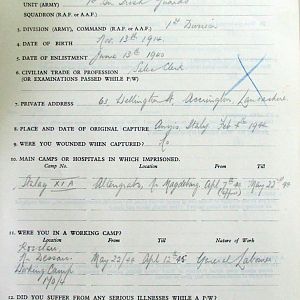 UNIT (ARMY) 1st Bn Irish Guards
SQUADRON (R.A.F. or A.A.F.)
3. DIVISION (ARMY), COMMAND (R.A.F. or A.A.F.) 1st Division
4. DATE OF BIRTH Nov. 13th 1914.
5. DATE OF ENLISTMENT June 13th 1940
6. CIVILIAN TRADE OR PROFESSION Sales Clerk
(OR EXAMINATIONS PASSED WHILE P/W)
7. PRIVATE ADDRESS 63 Dellington St, Accrington, Lancashire
8. PLACE AND DATE OF ORIGINAL CAPTURE Anzio. Italy Feb 4th 1944
9. WERE YOU WOUNDED WHEN CAPTURED? No
10. MAIN CAMPS OR HOSPITALS IN WHICH IMPRISONED.
Camp No. Location From Till
Stalag XI A Altengrabow, Nr Magdeburg April 7th 44 May 22nd 44
11. WERE YOU IN A WORKING CAMP?
Location From Till Nature of Work
Rosslau
Nr Dessau May 22/44 April 12th 45 General Labourer
Working Camp
12. DID YOU SUFFER FROM ANY SERIOUS ILLNESSES WHILE A P/W?